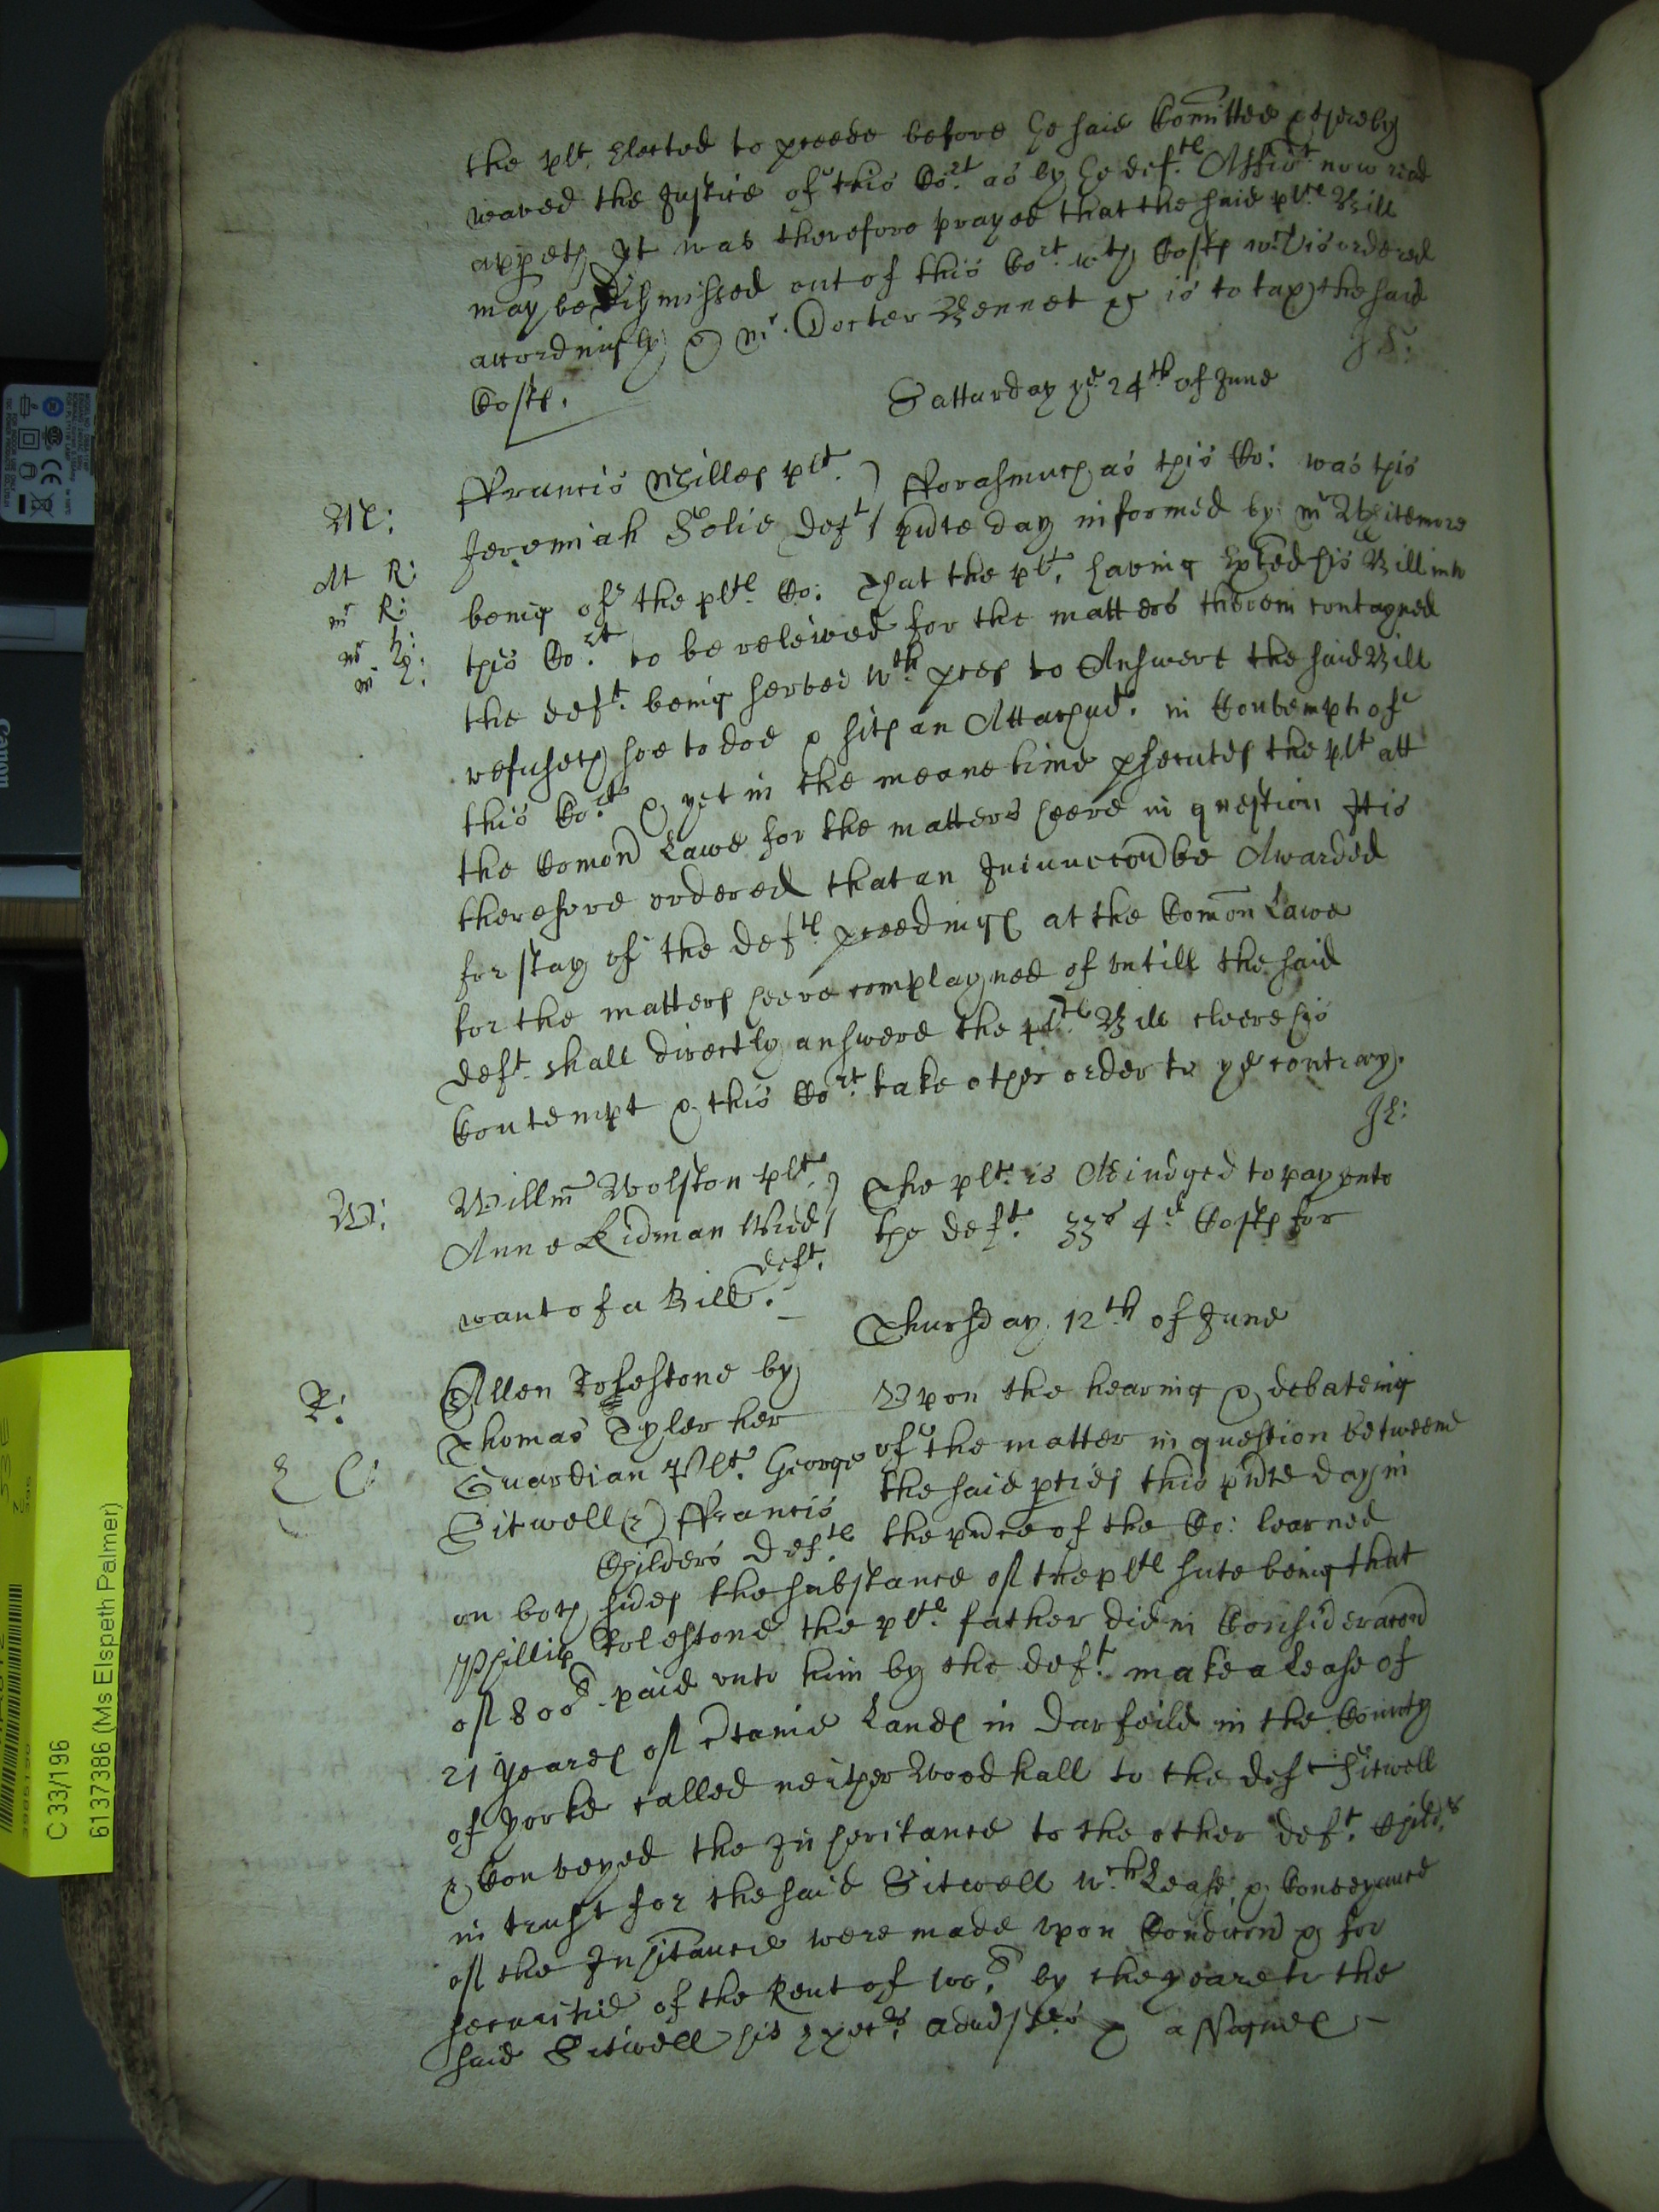 the plt. Elected to pceede before ye said Comittee & thereby
waved the Justice of this Cort. as by ye deftes. Affidt. now read
appeth It was therefore prayed that the said pltes. Bill
may be dismissed out of this Cort. wth Costs wch. is ordered
accordingly & mr. Docter Bennet is to tax the said
Costs.
Satturday ye 24th of June
M:
ffrancis Milles plt. fforasmuch as this Co: was this
Jeremiah Solie deft pnte day informed by mr Whitemore
At R:
mr R:
being of the pltes. Co: That the plt. having Exhted his Bill into
this Cort to be releived for the matters therein contayned
the deft. being served wth. pces to Answere the said Bill
refuseth soe to doe & sitts an Attachmt. in Contempt of
this Cort. & yet in the meane time psecutes the plt att
the Comon Lawe for the matters heere in question It is
therefore ordered that an Iniunccon be Awarded
for stay of the deftes. pceedings at the Comon Lawe
for the matters heere complayned of untill the said
deft. shall directly answere the pltes. Bill cleere his
Contempt & this Cort. take other order to ye contrary.
JL:
W:
Willm Wolston plt. The plt. is Adiudged to pay unto
Anne Kidman Widd the deft. 33s 4d Costs for
deft.
want of a Bill.
Thursday 12th of June
R:
Ellen Rolestone by
Thomas Tyler her Upon the hearing & debateing
Guardian Plt. George of the matter in question betweene
Sitwell & ffrancis the said pties this pnte day in
Childers deftes. the pnce of the Co: learned
on both sides the substance of the pltes sute being that
Phillip Rolestone the pltes. father did in Consideracon
of 800l. paid unto him by the deft. make a Lease of
21 yeares of ctaine Landes in Darfeild in the County
of Yorke called neither Woodhall to the deft Sitwell
& Conveyed the Inheritance to the other deft. Childrs
in trust for the said Sitwell wch Lease & Conveyance
of the Inhitance were made upon Condicon & for
securitie of the Rent of 100l. by the yeare to the
said Sitwell his Execrs. admstrs & assignes
C 33/196
6137386 (Ms Elspeth Palmer)
Canon